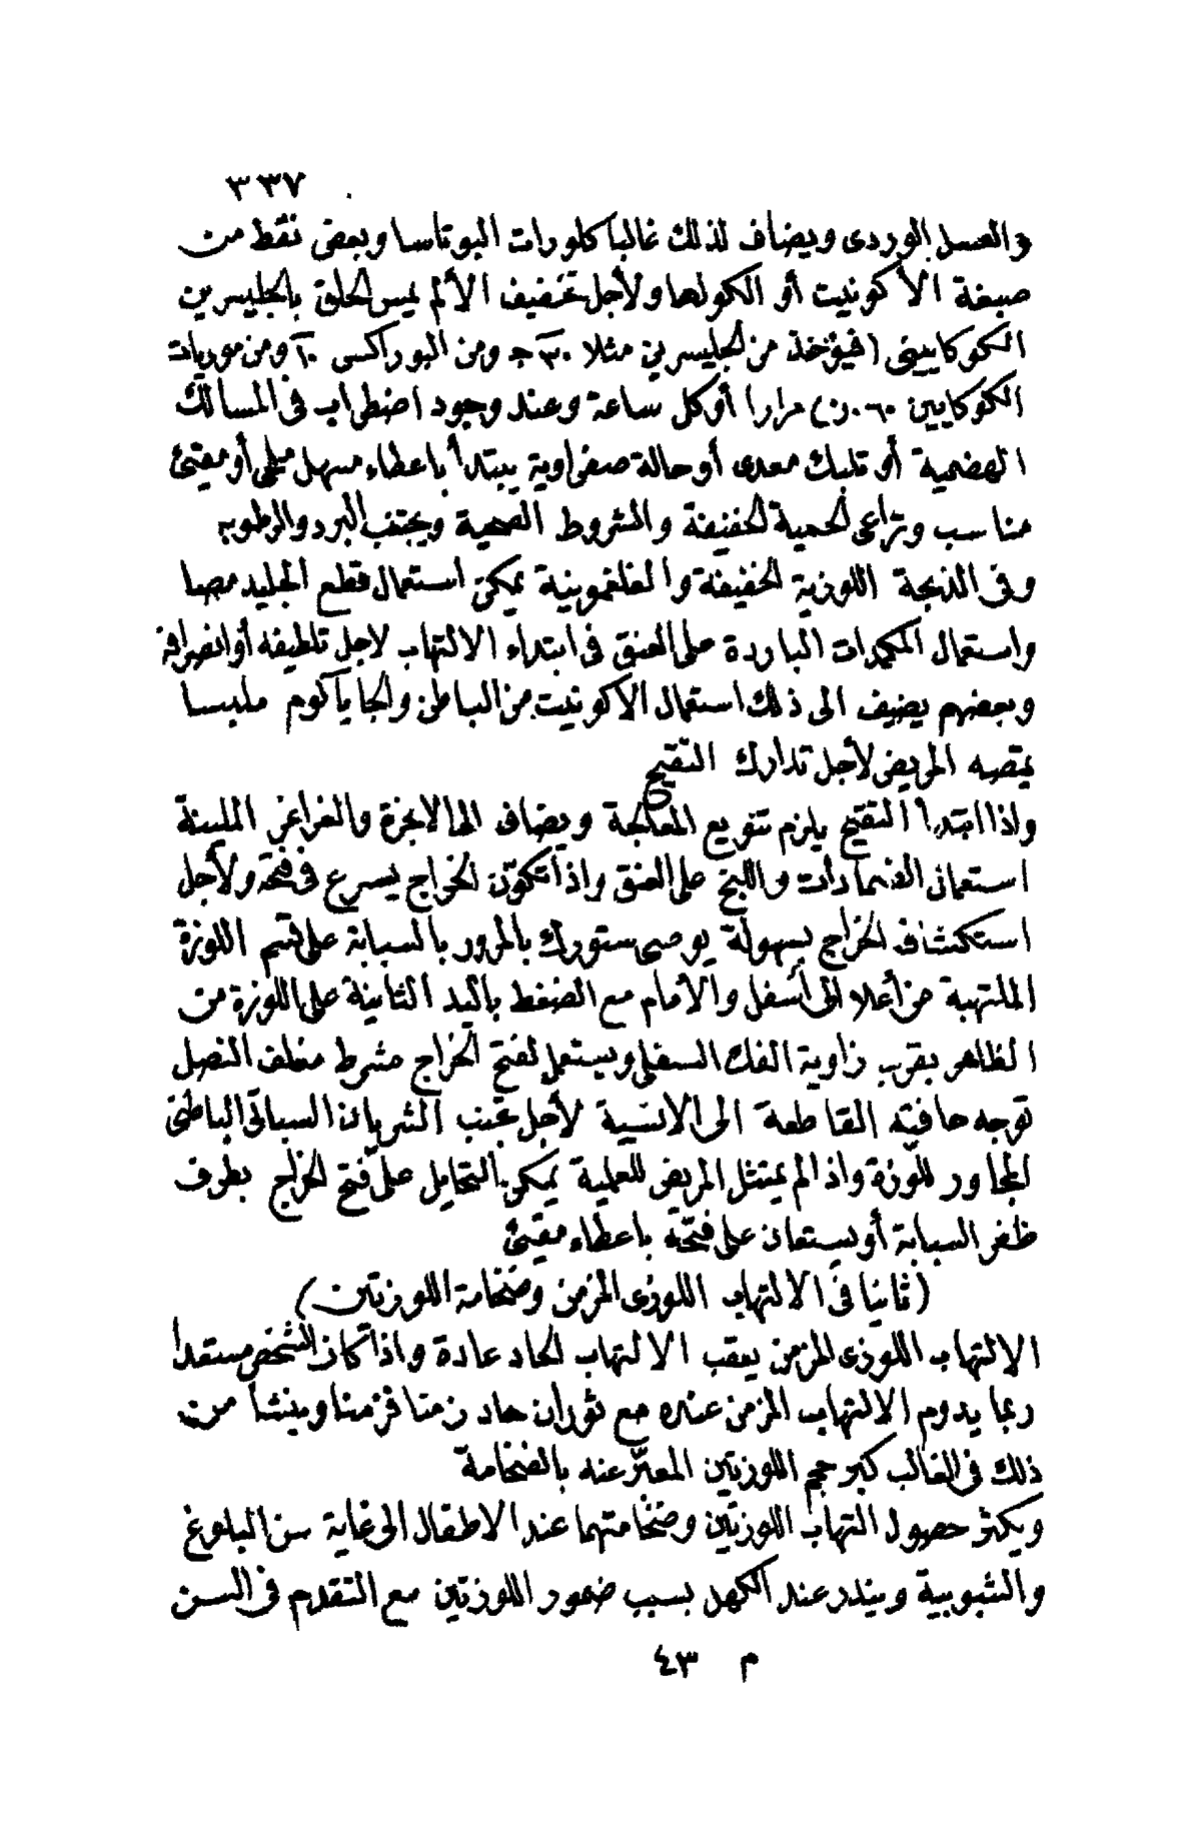 ٣٣٧
والعسل الوردى ويضاف لذلك غالبا كلورات البوتاسا وبعض نقط من
صبغة الأكونيت أو الكولها ولأجل تخفيف الألم يمس الحلق بالجليسرين
الكوكايينى (فيؤخذ من الجليسرين مثلا ٣٠ جـ ومن البوراكس ١٠ ومن موريات
الكوكايين ٠٦٠ ن) مرارا أو كل ساعة وعند وجود اضطراب فى المسالك
الهضمية أو تلبك معدى أو حالة صفراوية يبتدأ باعطاء مسهل ملحى أو مقيئ
مناسب وتراعى الحمية الخفيفة والشروط الصحية ويجتنب البرد والرطوبه
وفى الذبحة اللوزية الخفيفة والفلغمونية يمكن استعمال قطع الجليد مصا
واستعمال المكمدات الباردة على العنق فى ابتداء الالتهاب لاجل تلطيفه أو انصرافه
وبعضهم يضيف الى ذلك استعمال الاكونيت من الباطن والجاياكوم ملبسا
يمتصه المريض لأجل تدارك التقيح
واذا ابتدأ التقيح يلزم تنويع المعالجة ويضاف الها الابخرة والغراغر الملينة
استعمال الضمادات واللبخ على العنق واذا تكوّن الخراج يسرع فى فتحه ولأجل
استكشاف الخراج بسهولة يوصى ستورك بالمرور بالسبابة على قسم اللوزة
الملتهبة من أعلا الى أسفل والأمام مع الضغط باليد الثانية على اللوزة من
الظاهر بقرب زاوية الفك السفلى ويستعمل لفتح الخراج مشرط مغلف النصل
توجه حافته القاطعة الى الانسية لأجل تجنب الشريان السباتى الباطنى
المجاور للوزة واذا لم يمتثل المريض للعملية يمكن التحايل على فتح الخراج بطرف
ظفر السبابة أو يستعان على فتحه باعطاء مقيئ
(ثانيا فى الالتهاب اللوزى المزمن وضخامة اللوزتين)
الالتهاب اللوزى المزمن يعقب الالتهاب الحاد عادة واذا كان الشخص مستعدا
ربما يدوم الالتهاب المزمن عنده مع ثوران حاد زمنا فزمنا وينشأ من
ذلك فى الغالب كبر حجم اللوزتين المعبّر عنه بالضخامة
ويكثر حصول التهاب اللوزتين وضخامتهما عند الاطفال الى غاية سن البلوغ
والشبوبية ويندر عند الكهل بسبب ضمور اللوزتين مع التقدم فى السن
م ٤٣